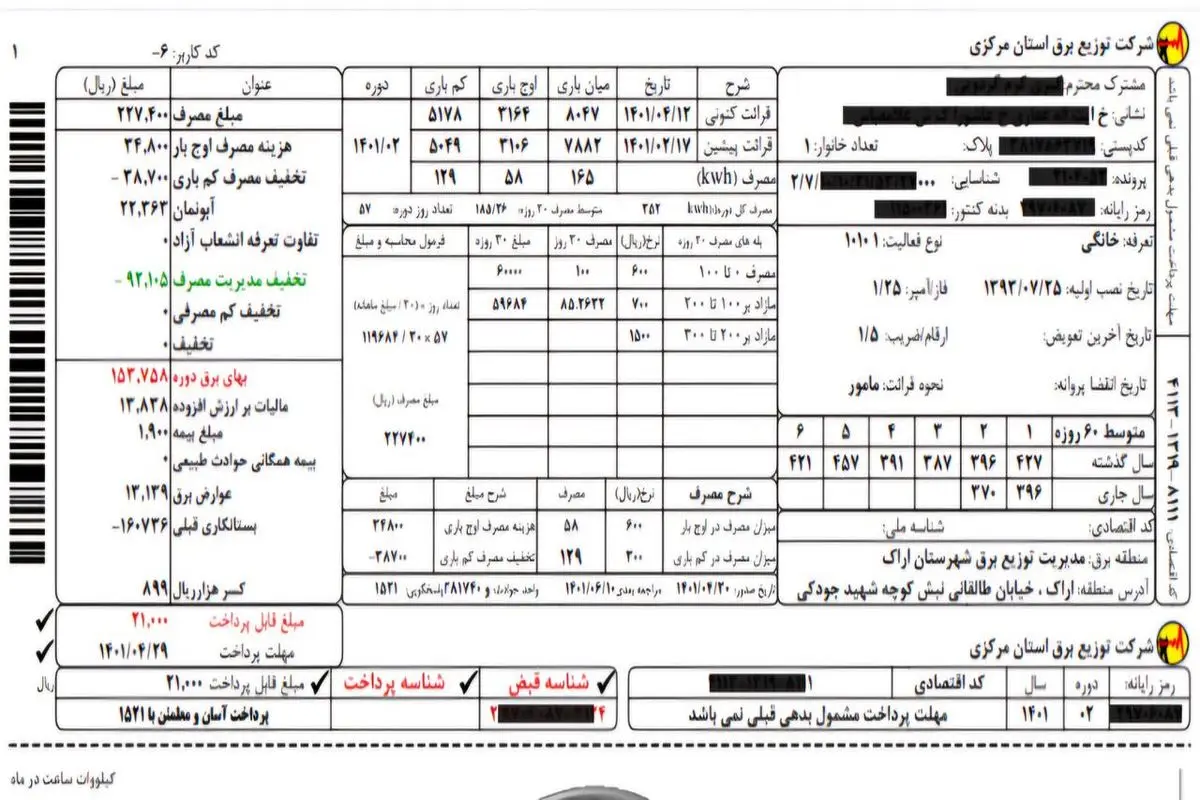 شرکت توزیع برق استان مرکزی
کد کاربر: ۶-
۱
مشترک محترم:
نشانی: خ
کدپستی: پلاک: تعداد خانوار: ۱
پرونده: شناسایی: ۲/۷/
رمز رایانه: بدنه کنتور:
تعرفه: خانگی نوع فعالیت: ۱۰۱۰۱
تاریخ نصب اولیه: ۱۳۹۳/۰۷/۲۵ فاز/آمپر: ۱/۲۵
تاریخ آخرین تعویض: ارقام/ضریب: ۱/۵
تاریخ انقضا پروانه: نحوه قرائت: مامور
متوسط ۶۰ روزه ۱ ۲ ۳ ۴ ۵ ۶
سال گذشته ۴۲۷ ۳۹۶ ۳۸۷ ۳۹۱ ۴۵۷ ۴۲۱
سال جاری ۳۹۶ ۳۷۰
کد اقتصادی: شناسه ملی:
منطقه برق: مدیریت توزیع برق شهرستان اراک
آدرس منطقه: اراک ، خیابان طالقانی نبش کوچه شهید جودکی
مهلت پرداخت مشمول بدهی قبلی نمی باشد
کد اقتصادی: ۴۱۱۳ – ۱۳۱۹ – ۸۱۱۱
شرح تاریخ میان باری اوج باری کم باری دوره
قرائت کنونی ۱۴۰۱/۰۴/۱۲ ۸۰۴۷ ۳۱۶۴ ۵۱۷۸
قرائت پیشین ۱۴۰۱/۰۲/۱۷ ۷۸۸۲ ۳۱۰۶ ۵۰۴۹ ۱۴۰۱/۰۲
مصرف (kwh) ۱۶۵ ۵۸ ۱۲۹
مصرف کل دوره(kwh): ۳۵۲ متوسط مصرف ۳۰ روزه: ۱۸۵/۲۶ تعداد روز دوره: ۵۷
پله های مصرف ۳۰ روزه نرخ(ریال) مصرف ۳۰ روز مبلغ ۳۰ روزه فرمول محاسبه و مبلغ
مصرف ۰ تا ۱۰۰ ۶۰۰ ۱۰۰ ۶۰۰۰۰
مازاد بر ۱۰۰ تا ۲۰۰ ۷۰۰ ۸۵.۲۶۳۲ ۵۹۶۸۴ تعداد روز * (۳۰ / مبلغ ماهانه)
مازاد بر ۲۰۰ تا ۳۰۰ ۱۵۰۰ ۱۱۹۶۸۴ / ۳۰ × ۵۷
مبلغ مصرف (ریال)
۲۲۷۴۰۰
شرح مصرف نرخ(ریال) مصرف شرح مبلغ مبلغ
میزان مصرف در اوج بار ۶۰۰ ۵۸ هزینه مصرف اوج باری ۳۴۸۰۰
میزان مصرف در کم باری ۳۰۰ ۱۲۹ تخفیف مصرف کم باری ۳۸۷۰۰-
تاریخ صدور: ۱۴۰۱/۰۴/۲۰ مراجعه بعدی: ۱۴۰۱/۰۶/۱۰ واحد حوادث: ۳۸۱۷۴۰ پاسخگویی: ۱۵۲۱
عنوان مبلغ (ریال)
مبلغ مصرف ۲۲۷,۴۰۰
هزینه مصرف اوج بار ۳۴,۸۰۰
تخفیف مصرف کم باری ۳۸,۷۰۰ -
آبونمان ۲۲,۳۶۳
تفاوت تعرفه انشعاب آزاد ۰
تخفیف مدیریت مصرف ۹۲,۱۰۵ -
تخفیف کم مصرفی ۰
تخفیف ۰
بهای برق دوره ۱۵۳,۷۵۸
مالیات بر ارزش افزوده ۱۳,۸۳۸
مبلغ بیمه ۱,۹۰۰
بیمه همگانی حوادث طبیعی ۰
عوارض برق ۱۳,۱۳۹
بستانکاری قبلی ۱۶۰۷۳۶-
کسر هزارریال ۸۹۹
مبلغ قابل پرداخت ۲۱,۰۰۰
مهلت پرداخت ۱۴۰۱/۰۴/۲۹
شرکت توزیع برق استان مرکزی
رمز رایانه: دوره سال کد اقتصادی
۰۲ ۱۴۰۱ مهلت پرداخت مشمول بدهی قبلی نمی باشد
شناسه قبض شناسه پرداخت مبلغ قابل پرداخت ۲۱,۰۰۰ ریال
پرداخت آسان و مطمئن با ۱۵۲۱
کیلووات ساعت در ماه